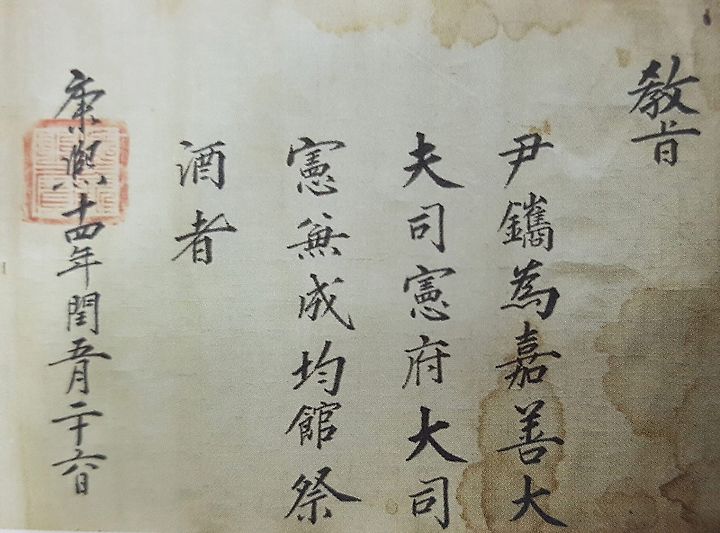 敎旨
尹鑴為嘉善大
夫司憲府大司
憲兼成均館祭
酒者
康熙十四年閏五月二十六日